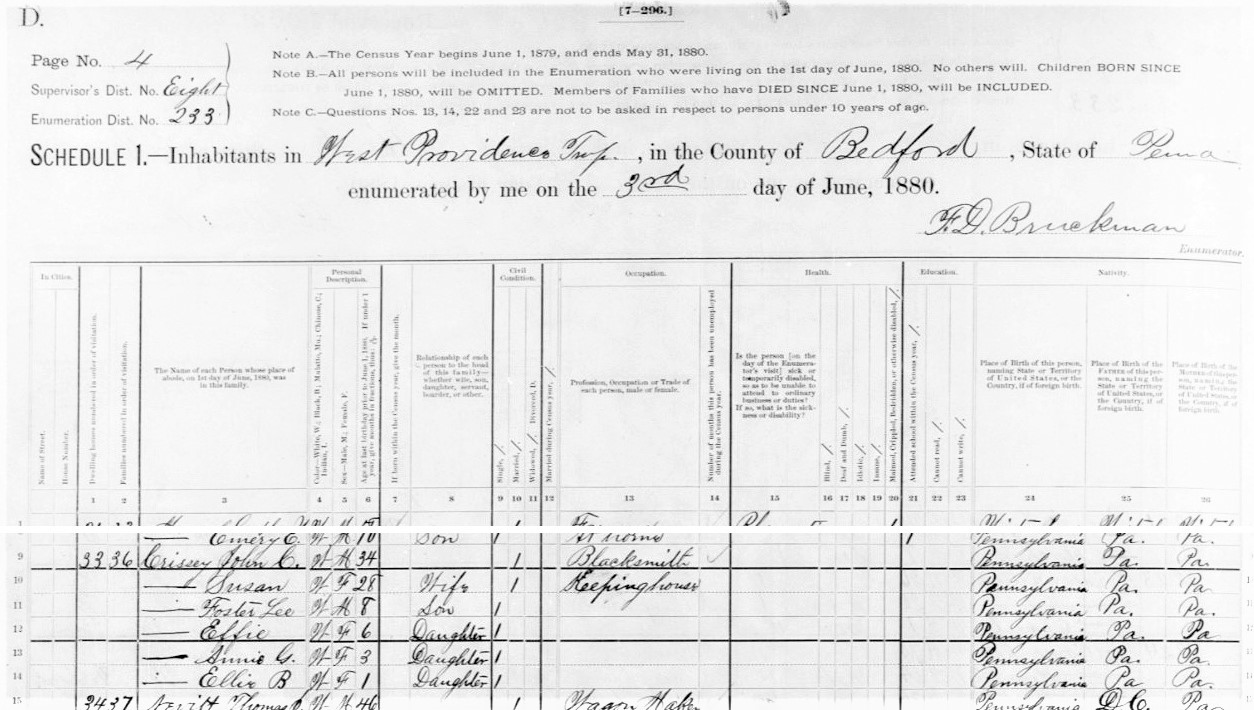 D.
[7-296.]
Page No. 4
Supervisor's Dist. No. Eight
Enumeration Dist. No. 233
Note A.—The Census Year begins June 1, 1879, and ends May 31, 1880.
Note B.—All persons will be included in the Enumeration who were living on the 1st day of June, 1880. No others will. Children BORN SINCE
June 1, 1880, will be OMITTED. Members of Families who have DIED SINCE June 1, 1880, will be INCLUDED.
Note C.—Questions Nos. 13, 14, 22 and 23 are not to be asked in respect to persons under 10 years of age.
SCHEDULE 1.—Inhabitants in West Providence Twp. , in the County of Bedford , State of Penna
enumerated by me on the 3rd day of June, 1880.
F. D. Bruckman
Enumerator.
In Cities. Personal Description. Civil Condition. Occupation. Health. Education. Nativity.
Name of Street.
House Number.
Dwelling houses numbered in order of visitation.
Families numbered in order of visitation.
The Name of each Person whose place of
abode, on 1st day of June, 1880, was
in this family.
Color—White, W.; Black, B.; Mulatto, Mu.; Chinese, C.;
Indian, I.
Sex—Male, M.; Female, F.
Age at last birthday prior to June 1, 1880. If under 1
year, give months in fractions, thus:
If born within the Census year, give the month.
Relationship of each
person to the head
of this family—
whether wife, son,
daughter, servant,
boarder, or other.
Single, /.
Married, /.
Widowed, /. Divorced, D.
Married during Census year, /.
Profession, Occupation or Trade of
each person, male or female.
Number of months this person has been unemployed
during the Census year.
Is the person [on the
day of the Enumera-
tor's visit] sick or
temporarily disabled,
so as to be unable to
attend to ordinary
business or duties?
If so, what is the sick-
ness or disability?
Blind, /.
Deaf and Dumb, /.
Idiotic, /.
Insane, /.
Maimed, Crippled, Bedridden, or otherwise disabled, /.
Attended school within the Census year, /.
Cannot read, /.
Cannot write, /.
Place of Birth of this person,
naming State or Territory
of United States, or the
Country, if of foreign birth.
Place of Birth of the
FATHER of this per-
son, naming the
State or Territory
of United States, or
the Country, if of
foreign birth.
Place of Birth of the
MOTHER of this per-
son, naming the
State or Territory
of United States, or
the Country, if of
foreign birth.
1 2 3 4 5 6 7 8 9 10 11 12 13 14 15 16 17 18 19 20 21 22 23 24 25 26
— Emery C. W M 10 Son At home / Pennsylvania Pa. Pa.
9 33 36 Crissey John C. W M 34 / Blacksmith Pennsylvania Pa. Pa.
10 — Susan W F 28 Wife / Keeping house Pennsylvania Pa. Pa.
11 — Foster Lee W M 8 Son / Pennsylvania Pa. Pa.
12 — Effie W F 6 Daughter / Pennsylvania Pa. Pa
13 — Annie G. W F 3 Daughter / Pennsylvania Pa. Pa.
14 — Ellie B W F 1 Daughter / Pennsylvania Pa Pa.
15 34 37 Nevitt Thomas W M 46 / Wagon Maker Pennsylvania D.C. Pa.